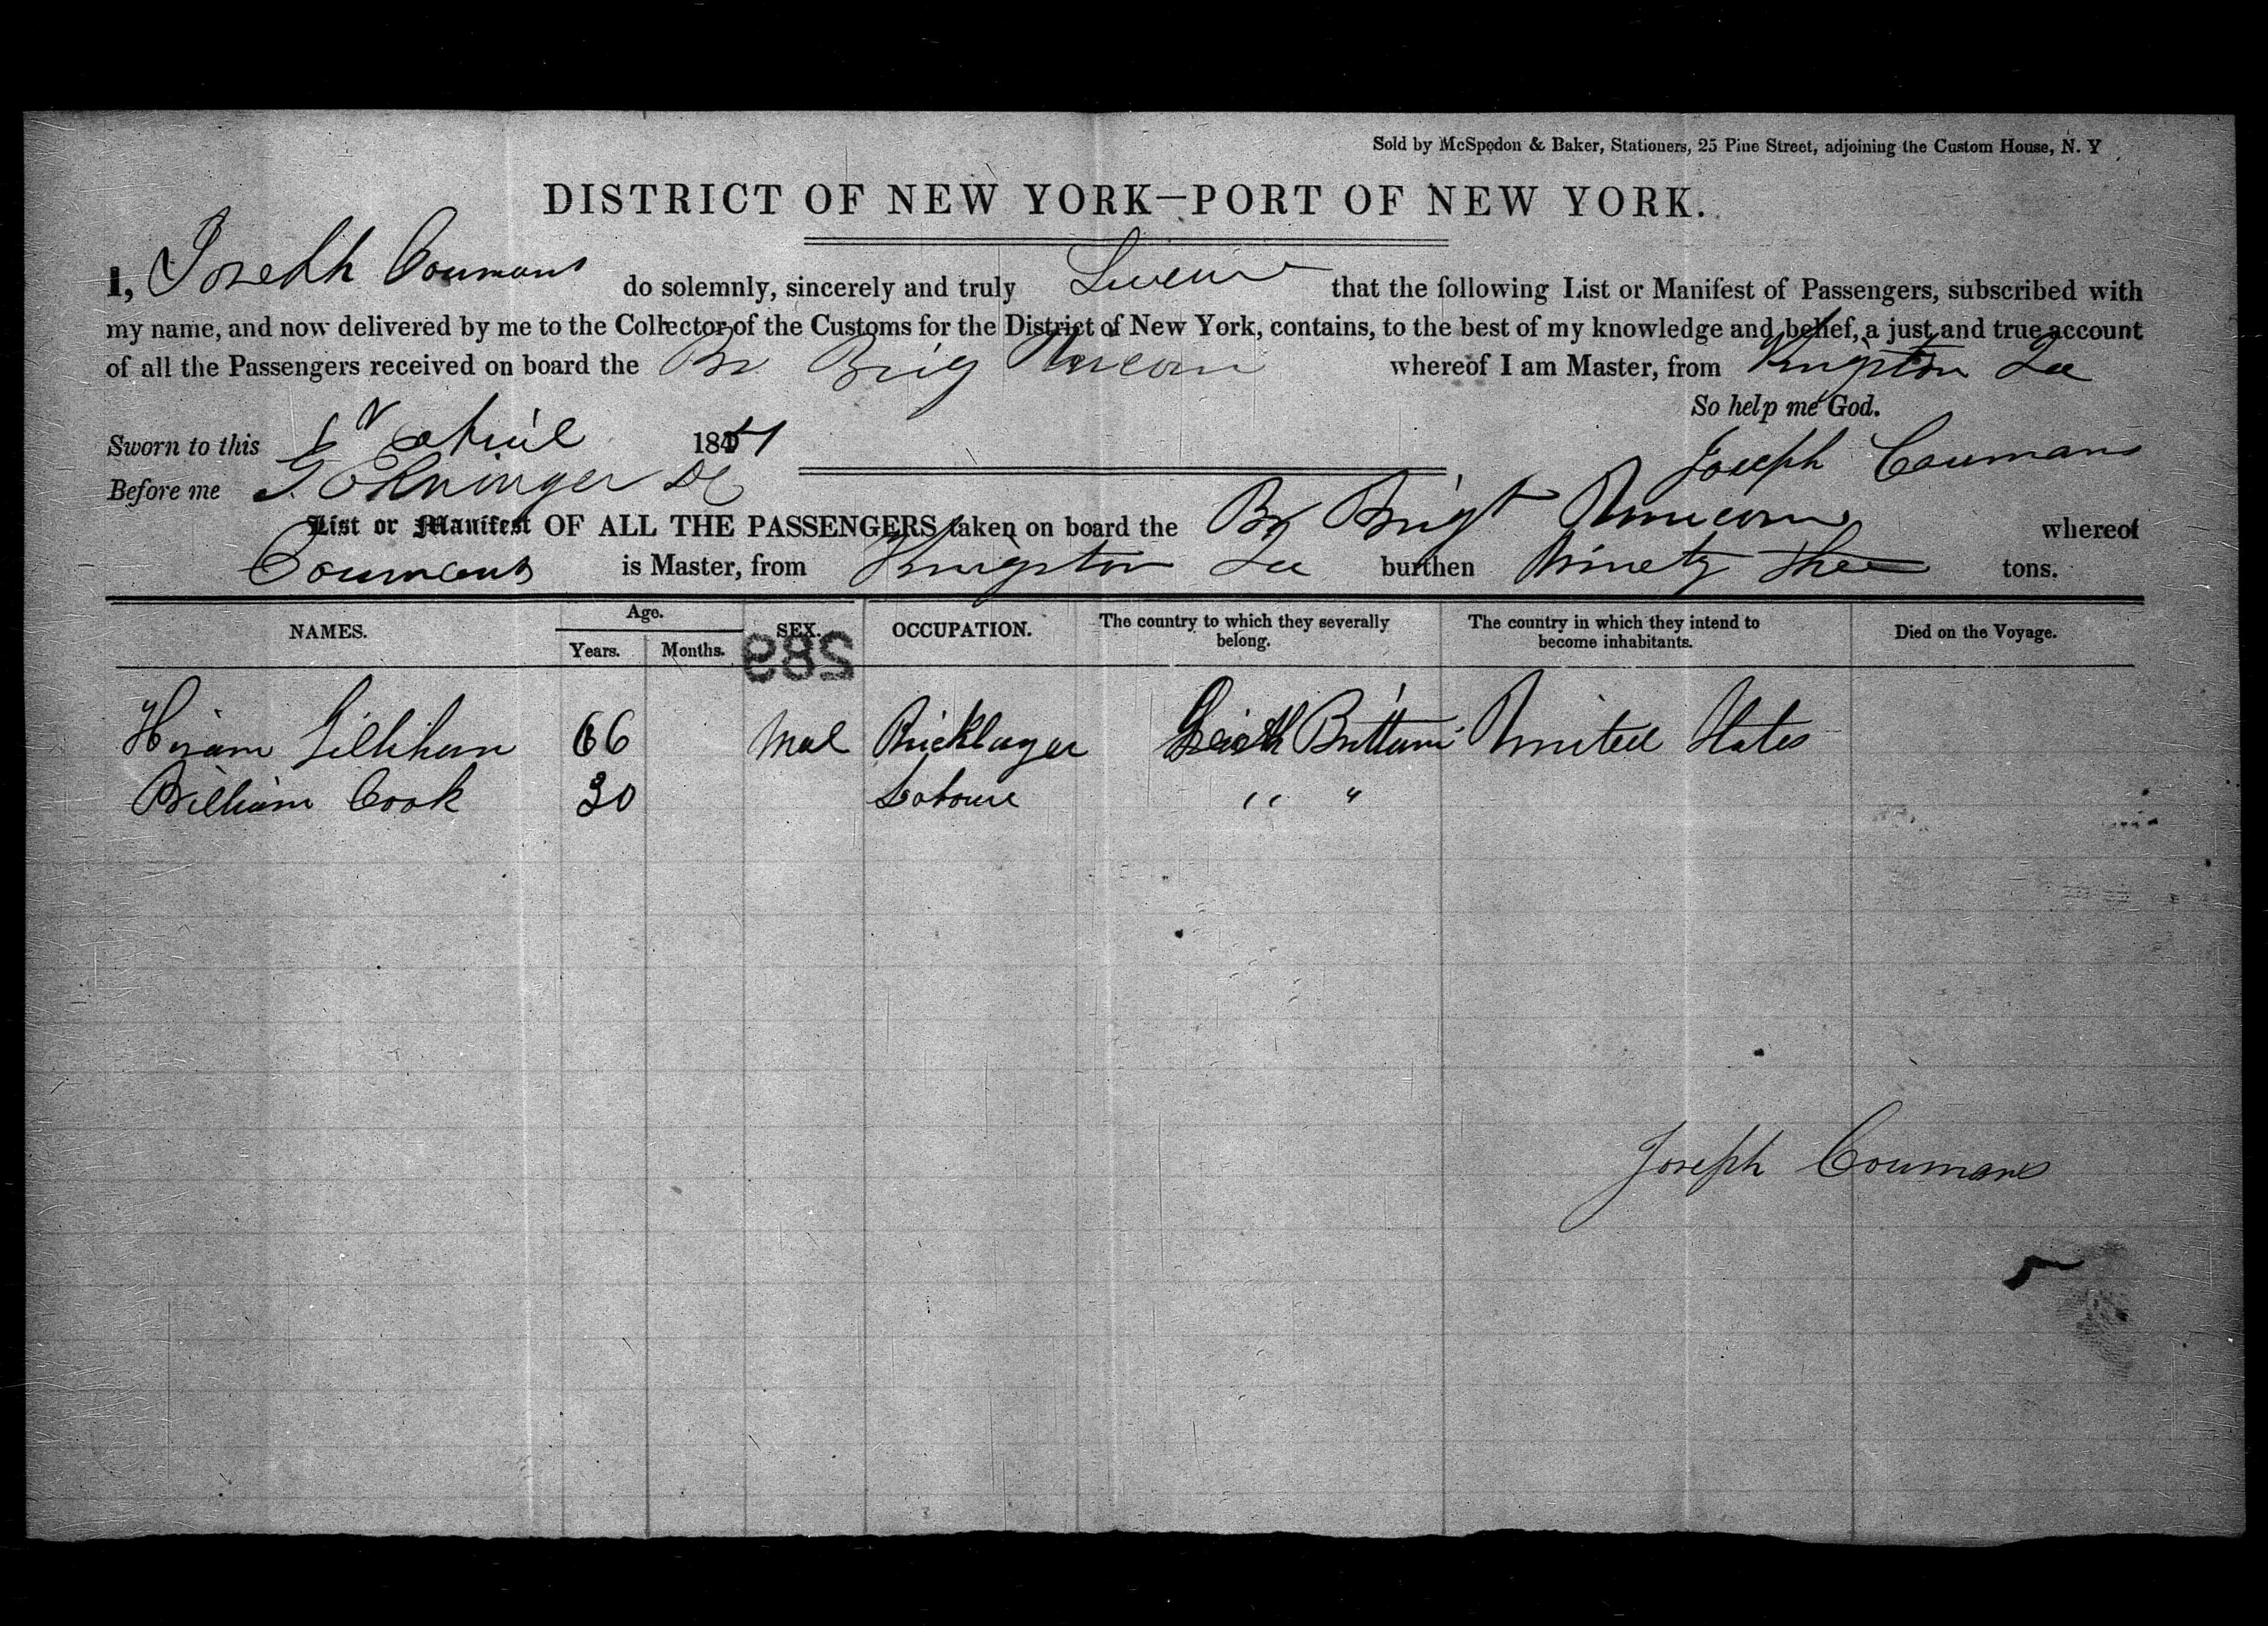 Sold by McSpedon & Baker, Stationers, 25 Pine Street, adjoining the Custom House, N. Y
DISTRICT OF NEW YORK—PORT OF NEW YORK.
I, Joseph Coumans do solemnly, sincerely and truly Swear that the following List or Manifest of Passengers, subscribed with
my name, and now delivered by me to the Collector of the Customs for the District of New York, contains, to the best of my knowledge and belief, a just and true account
of all the Passengers received on board the Br Brig Unicorn whereof I am Master, from Kingston Ja
So help me God.
Sworn to this April 18
Joseph Coumans
Before me
List or Manifest OF ALL THE PASSENGERS taken on board the Br Brigt Unicorn whereof
Coumans is Master, from Kingston Ja burthen Ninety Three tons.
NAMES. Age. SEX. OCCUPATION. The country to which they severally belong. The country in which they intend to become inhabitants. Died on the Voyage.
Years. Months.
289
Hiram 66 Mal Bricklayer Great Brittain United States
William Cook 30 Laboure " "
Joseph Coumans